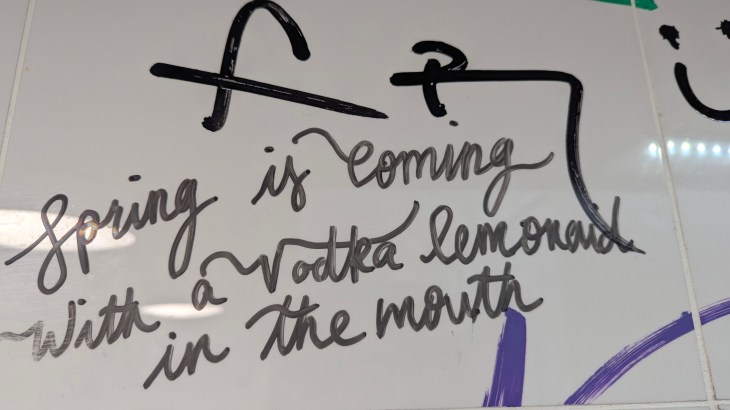 Spring is coming
with a vodka lemonaid
in the mouth